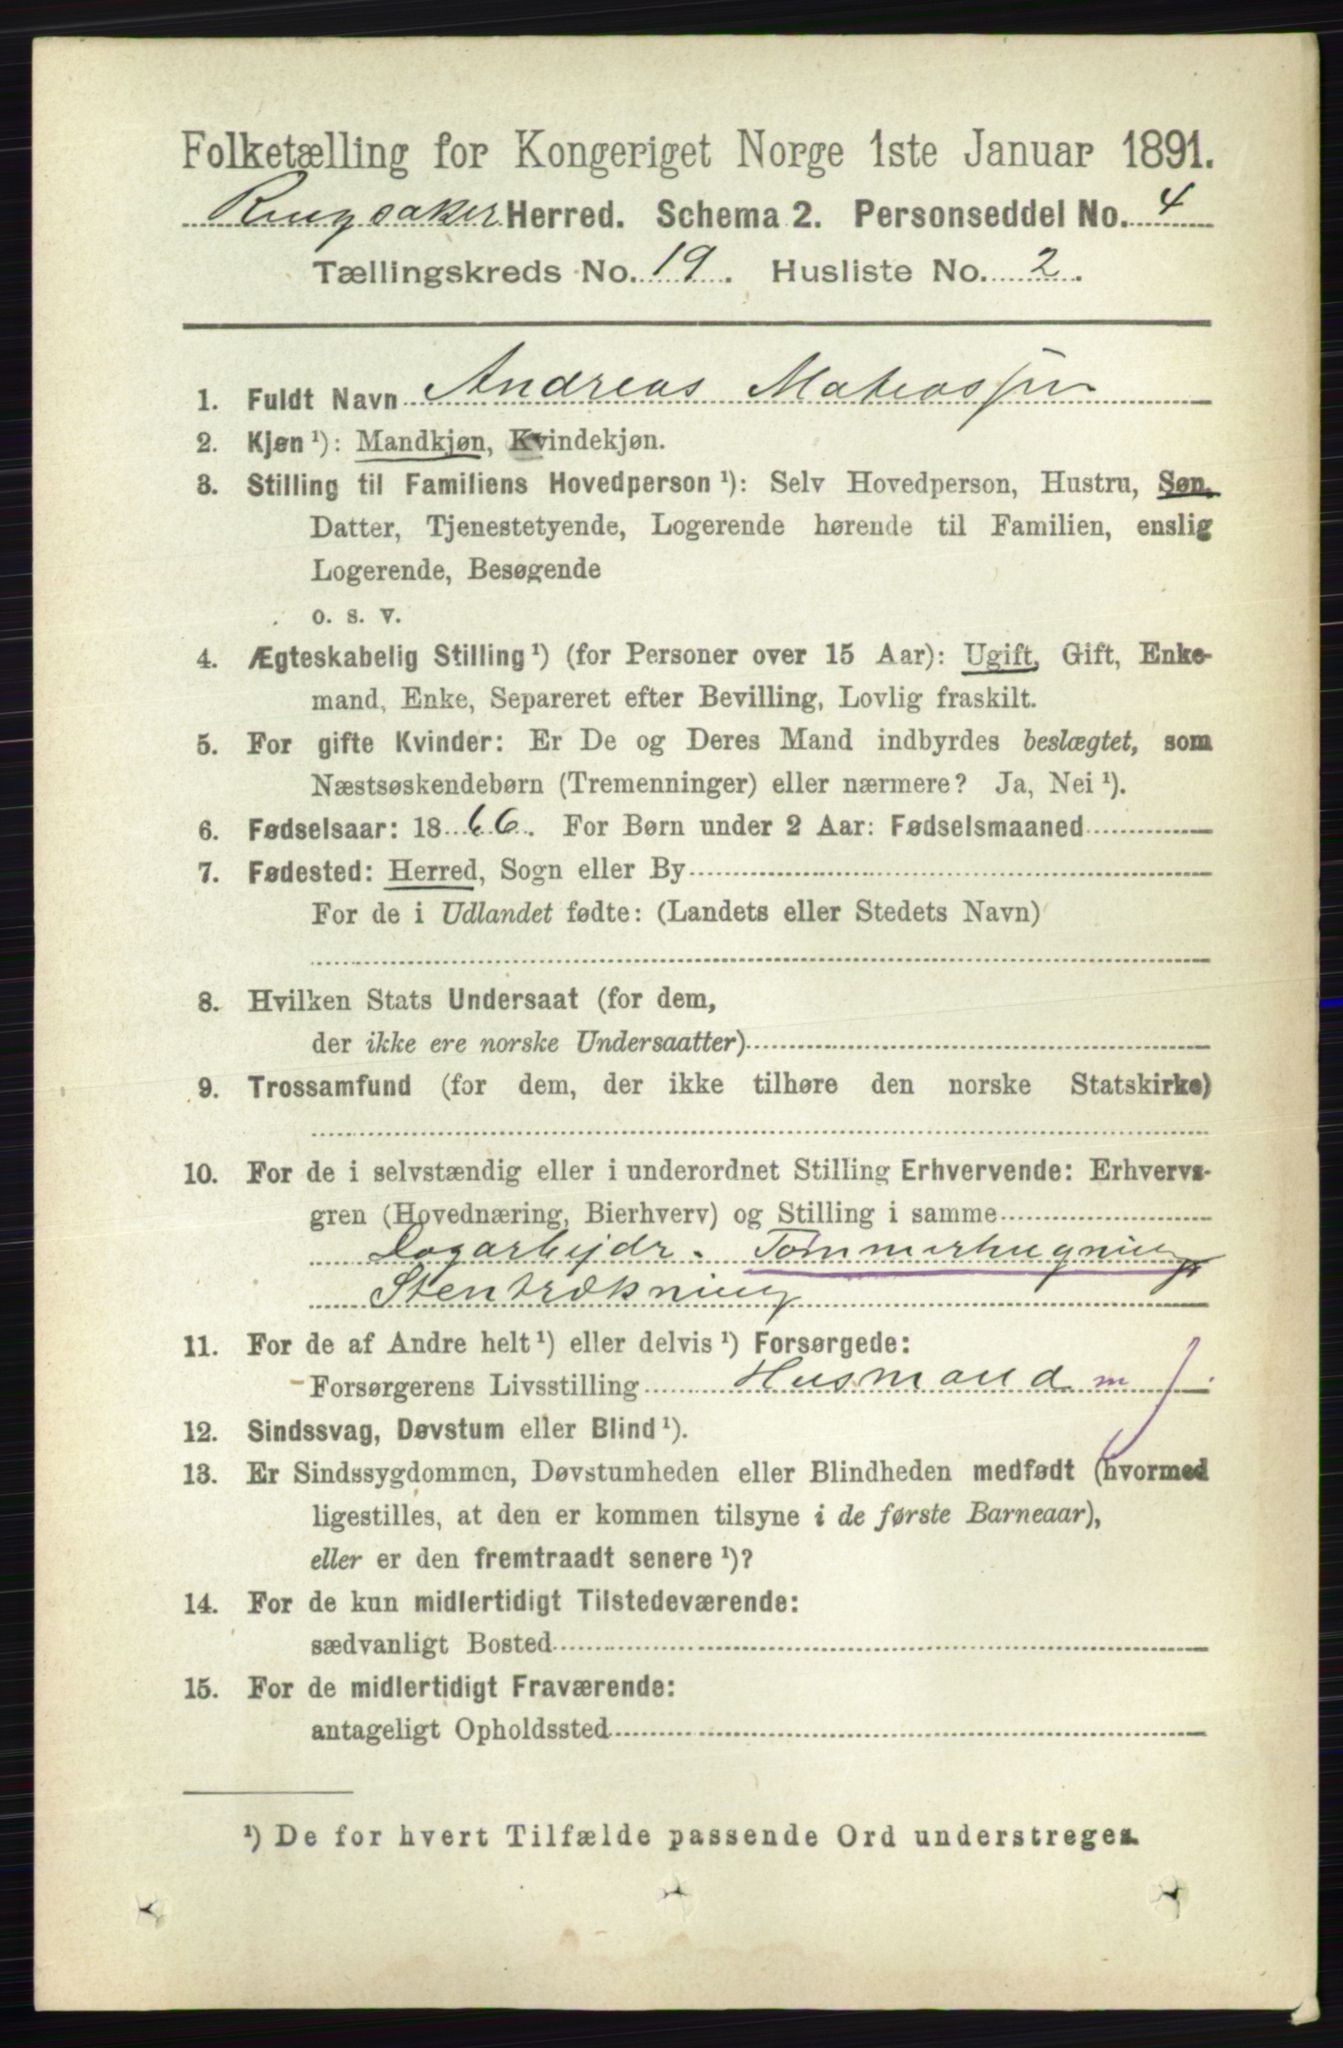 Folketælling for Kongeriget Norge 1ste Januar 1891.
Ringsaker Herred. Schema 2. Personseddel No. 4
Tællingskreds No. 19. Husliste No. 2.
1. Fuldt Navn Andreas Mateassen
2. Kjøn ¹): Mandkjøn, Kvindekjøn.
3. Stilling til Familiens Hovedperson ¹): Selv Hovedperson, Hustru, Søn,
Datter, Tjenestetyende, Logerende hørende til Familien, enslig
Logerende, Besøgende
o. s. v.
4. Ægteskabelig Stilling ¹) (for Personer over 15 Aar): Ugift, Gift, Enke-
mand, Enke, Separeret efter Bevilling, Lovlig fraskilt.
5. For gifte Kvinder: Er De og Deres Mand indbyrdes beslægtet, som
Næstsøskendebørn (Tremenninger) eller nærmere? Ja, Nei ¹).
6. Fødselsaar: 1866. For Børn under 2 Aar: Fødselsmaaned
7. Fødested: Herred, Sogn eller By
For de i Udlandet fødte: (Landets eller Stedets Navn)
8. Hvilken Stats Undersaat (for dem,
der ikke ere norske Undersaatter)
9. Trossamfund (for dem, der ikke tilhøre den norske Statskirke)
10. For de i selvstændig eller i underordnet Stilling Erhvervende: Erhvervs-
gren (Hovednæring, Bierhverv) og Stilling i samme
Dagarbejdr. Tømmerhugning
Stenbrækning
11. For de af Andre helt ¹) eller delvis ¹) Forsørgede:
Forsørgerens Livsstilling Husmand m J
12. Sindssvag, Døvstum eller Blind ¹).
13. Er Sindssygdommen, Døvstumheden eller Blindheden medfødt (hvormed
ligestilles, at den er kommen tilsyne i de første Barneaar),
eller er den fremtraadt senere ¹)?
14. For de kun midlertidigt Tilstedeværende:
sædvanligt Bosted
15. For de midlertidigt Fraværende:
antageligt Opholdssted
¹) De for hvert Tilfælde passende Ord understreges.